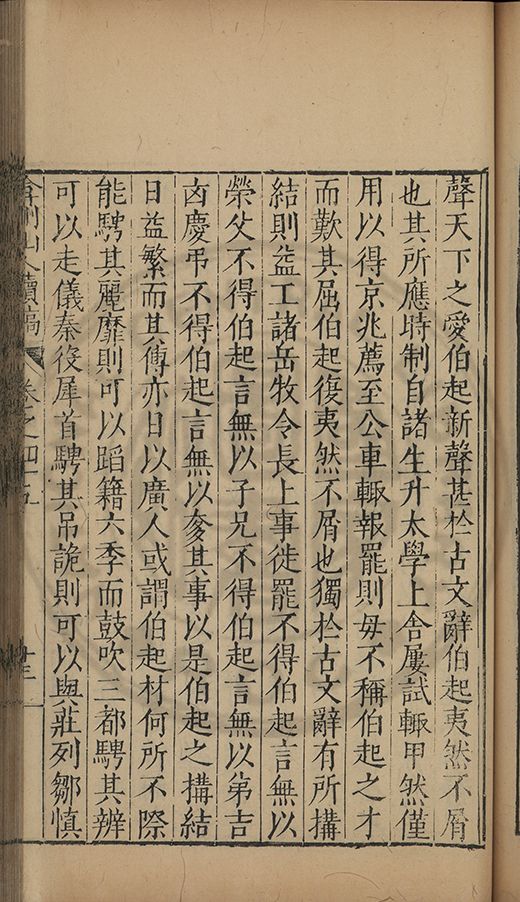 聲天下之愛伯起新聲甚於古文辭伯起夷然不屑
也其所應時制自諸生升太學上舍屢試輙甲然僅
用以得京兆薦至公車輙報罷則毋不稱伯起之才
而歎其屈伯起復夷然不屑也獨於古文辭有所搆
結則益工諸岳牧令長上事徙罷不得伯起言無以
榮父不得伯起言無以子兄不得伯起言無以弟吉
凶慶弔不得伯起言無以奓其事以是伯起之搆結
日益繁而其傳亦日以廣人或謂伯起材何所不際
能騁其麗靡則可以蹈籍六季而鼓吹三都騁其辨
可以走儀秦役犀首騁其吊詭則可以與莊列鄒慎
弇州山人續稿 卷之四十五 廿三